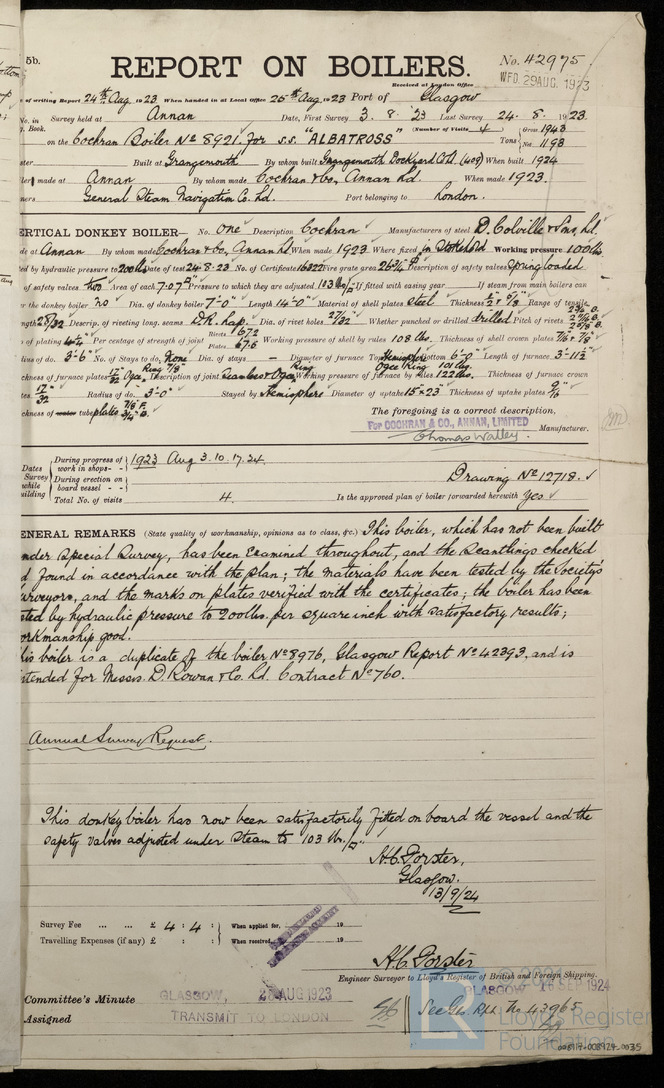 5b.
REPORT ON BOILERS.
No. 42975.
Received at London Office
WED. 29 AUG. 1923
of writing Report 24th Aug 1923 When handed in at Local Office 25th Aug 1923 Port of Glasgow
No. in Survey held at Annan Date, First Survey 3. 8. 23 Last Survey 24. 8. 1923.
g. Book. (Number of Visits 4)
on the Cochran Boiler No 8921. for s.s. "ALBATROSS" Tons Gross 1943 Net 1193
Built at Grangemouth By whom built Grangemouth Dockyard Co Ld (409) When built 1924
made at Annan By whom made Cochran & Co, Annan Ld When made 1923.
ners General Steam Navigation Co. Ld. Port belonging to London.
ERTICAL DONKEY BOILER— No. One Description Cochran Manufacturers of steel D. Colville & Sons, Ld.
de at Annan By whom made Cochran & Co, Annan Ld When made 1923 Where fixed in Stokehold Working pressure 100 lbs
ted by hydraulic pressure to 200 lbs Date of test 24-8-23 No. of Certificate 16322 Fire grate area 26 3/4 Description of safety valves Spring loaded
of safety valves two Area of each 7.07 Pressure to which they are adjusted 103 lbs If fitted with easing gear If steam from main boilers can
r the donkey boiler no Dia. of donkey boiler 7'-0" Length 14'-0" Material of shell plates steel Thickness Range of tensile
ngth 28/32 Descrip. of riveting long. seams D.R. Lap. Dia. of rivet holes 27/32 Whether punched or drilled drilled Pitch of rivets
of plating Per centage of strength of joint Rivets 67.2 Plates 67.6 Working pressure of shell by rules 108 lbs. Thickness of shell crown plates
dius of do. 3'-6" No. of Stays to do. None Dia. of stays — Diameter of furnace Top Hemisphere Bottom 6'-0" Length of furnace 3'-11 1/2
ckness of furnace plates 17/32 Ogee Ring 7/8" Description of joint Seamless & Ogee Ring Working pressure of furnace by rules 122 lbs. Ogee Ring 101 lbs. Thickness of furnace crown
tes 17/32" Radius of do. 3'-0" Stayed by Hemisphere Diameter of uptake 15" x 23" Thickness of uptake plates 9/16"
ckness of water tube plates 7/8 F. 3/4 B.
The foregoing is a correct description,
FOR COCHRAN & CO., ANNAN, LIMITED
Thomas Walley. Manufacturer.
Dates Survey while building
During progress of work in shops - - 1923 Aug 3. 10. 17. 24.
During erection on board vessel - - -
Total No. of visits 4.
Drawing No 12718.
Is the approved plan of boiler forwarded herewith yes
ENERAL REMARKS (State quality of workmanship, opinions as to class, &c.) This boiler, which has not been built
nder Special Survey, has been examined throughout, and the scantlings checked
d found in accordance with the plan; the materials have been tested by the Society's
urveyors, and the marks on plates verified with the certificates; the boiler has been
sted by hydraulic pressure to 200 lbs. per square inch with satisfactory results;
orkmanship good.
his boiler is a duplicate of the boiler No 8976, Glasgow Report No 42393, and is
ntended for Messrs. D. Rowan & Co. Ld. Contract No 760.
Annual Survey Request.
This donkey boiler has now been satisfactorily fitted on board the vessel and the
safety valves adjusted under steam to 103 lbs/□"
H.C. Forster,
Glasgow.
13/9/24
Survey Fee ... ... £ 4 : 4 : When applied for, 19
Travelling Expenses (if any) £ : : When received, 19
H.C. Forster
Engineer Surveyor to Lloyd's Register of British and Foreign Shipping.
Committee's Minute GLASGOW, 28 AUG 1923
GLASGOW 16 SEP 1924
Assigned TRANSMIT TO LONDON
See Gls. Rpt. No 43965
Lloyd's Register
Foundation
008917-008924-0035